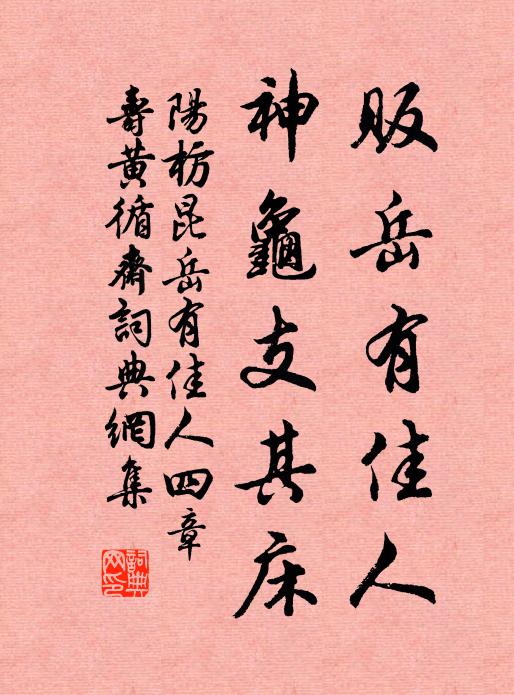 販岳有佳人
神龜支其床
陽枋昆岳有佳人四章
壽黃循齋詞典網集
詞典网印